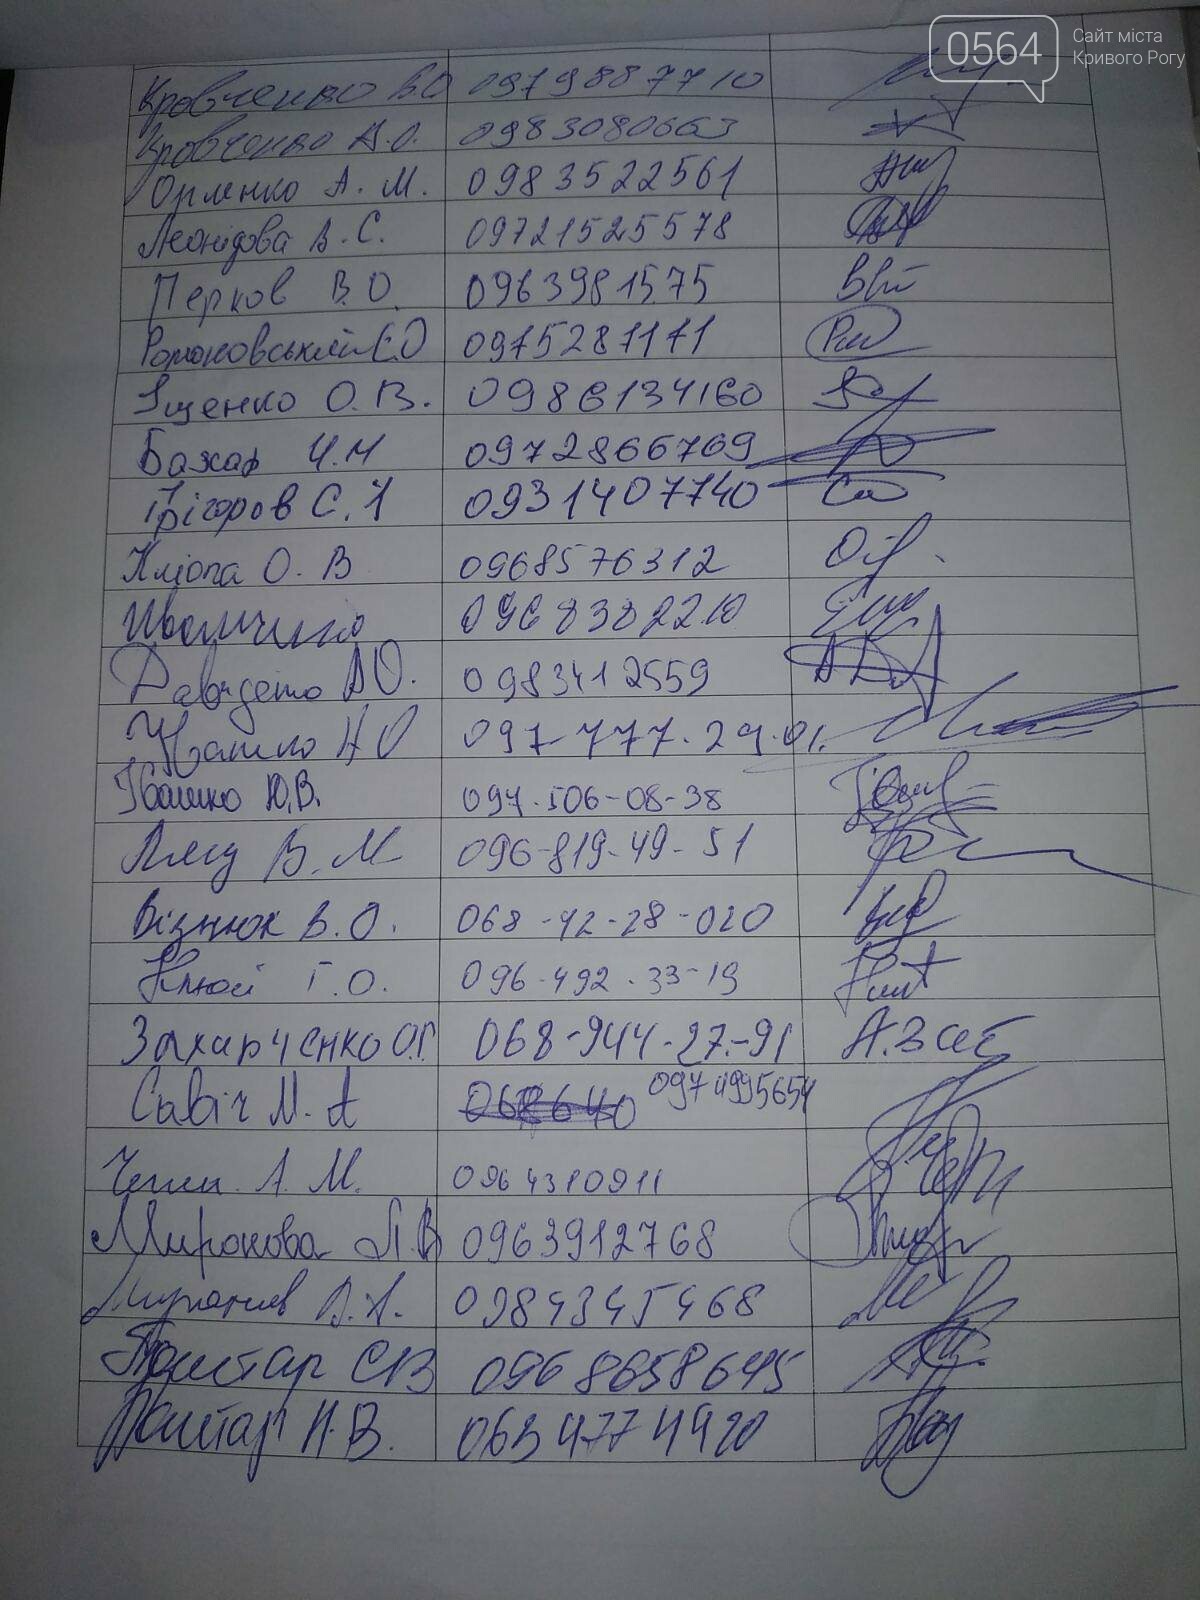 0564
Сайт міста
Кривого Рогу
Кровченко В.О 0979887710
Кровченко А.О. 0983080663
Орленко А. М. 0983522561
Леонідова А.С. 09721525578
Перков В.О. 0963981575
Романовський Є.О 0975281171
Іщенко О.В. 0986134160
Бажав 0972866769
Грігоров С. 0931407740
Кліопа О. В 0968576312
0968382210
0983412559
Івашко А О 097-777-29-01.
Івашко Ю.В. 097-506-08-38
Лягу В. М 096-819-49-51
Візнюк В.О. 068-42-28-020
Клюй Г.О. 096-492-33-19
Захарченко О.Г. 068-944-27-91 А.Зах
Савіч М. А 0974995654
А. М. 0964310911
Миронова Л.В 0963912768
В.А. 0984345468
Поштар С.В 0968658645
Поштар Н.В. 0634774920